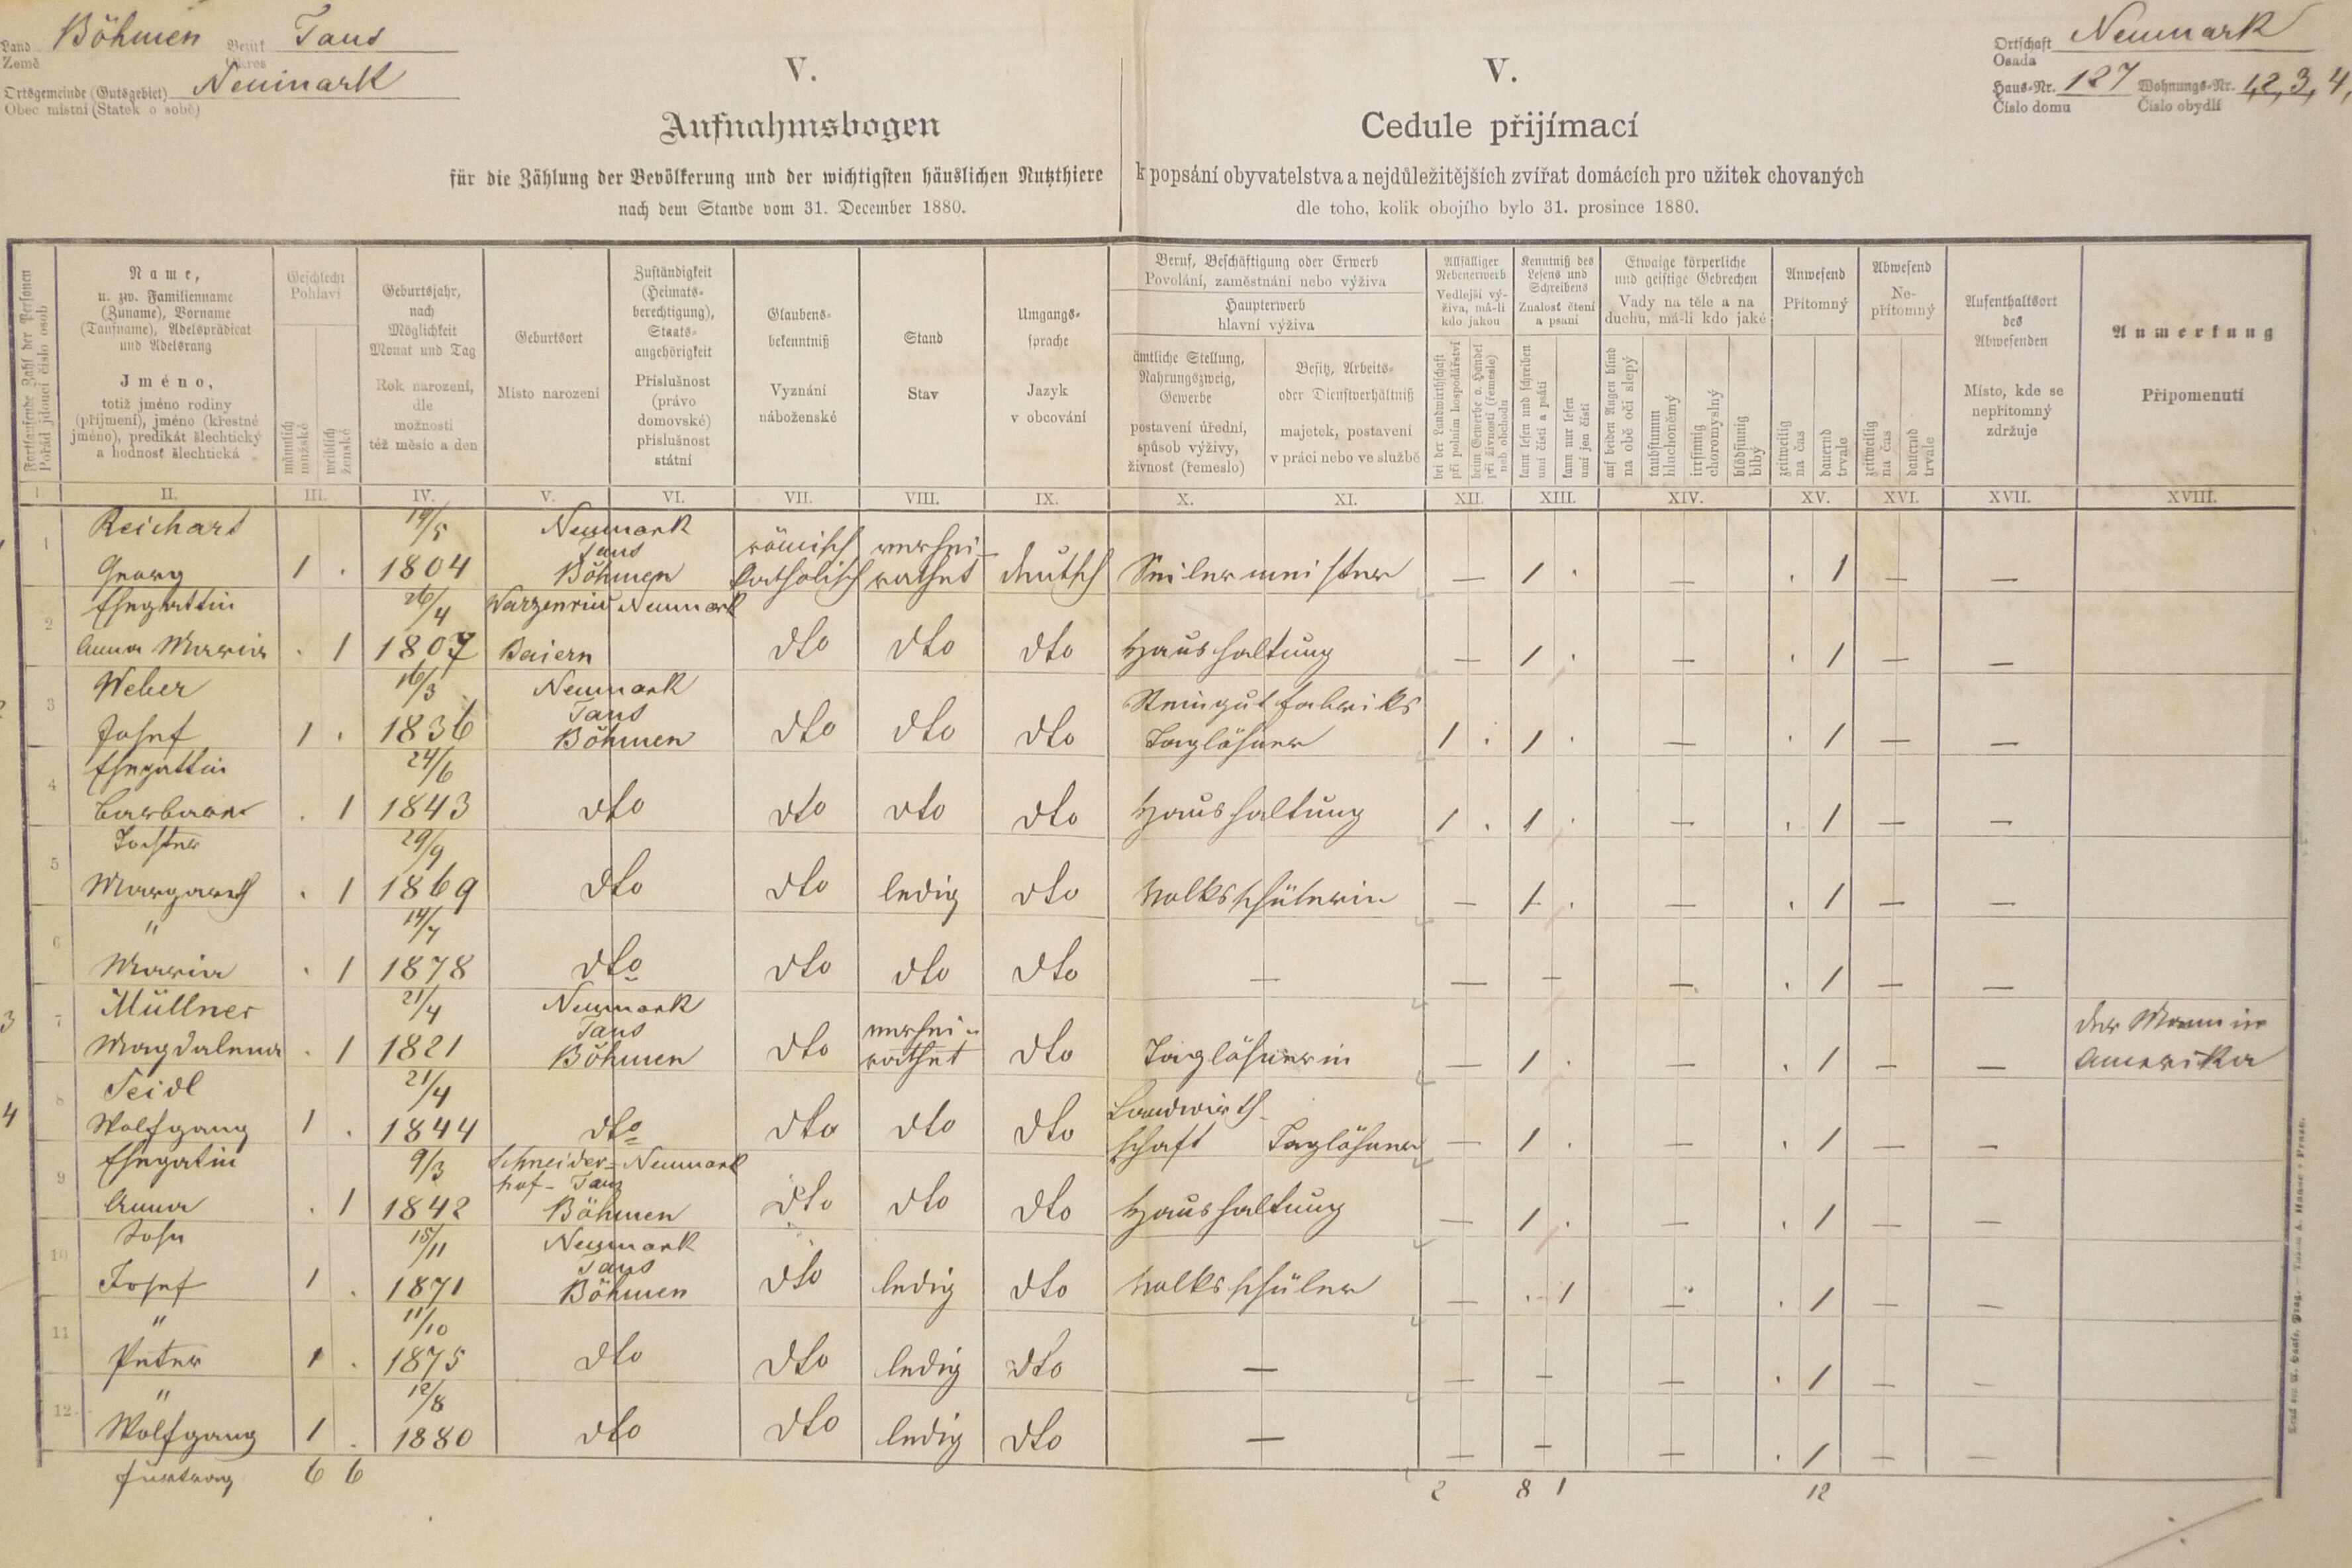 Land Böhmen Bezirk Taus
Země Okres
Ortsgemeinde (Gutsgebiet) Neumark
Obec místní (Statek o sobě)
Ortschaft Neumark
Osada
Haus-Nr. 127 Wohnungs-Nr. 1,2,3,4,
Číslo domu Číslo obydlí
V.
Aufnahmsbogen
für die Zählung der Bevölkerung und der wichtigsten häuslichen Nutzthiere
nach dem Stande vom 31. December 1880.
V.
Cedule přijímací
k popsání obyvatelstva a nejdůležitějších zvířat domácích pro užitek chovaných
dle toho, kolik obojího bylo 31. prosince 1880.
Fortlaufende Zahl der Personen
Pořád jdoucí číslo osob
Name,
u. zw. Familienname
(Zuname), Vorname
(Taufname), Adelsprädicat
und Adelsrang
Jméno,
totiž jméno rodiny
(příjmení), jméno (křestné
jméno), predikát šlechtický
a hodnosť šlechtická
Geschlecht
Pohlaví
männlich
mužské
weiblich
ženské
Geburtsjahr,
nach
Möglichkeit
Monat und Tag
Rok narození,
dle
možnosti
též měsíc a den
Geburtsort
Místo narození
Zuständigkeit
(Heimats-
berechtigung),
Staats-
angehörigkeit
Příslušnost
(právo
domovské)
příslušnost
státní
Glaubens-
bekenntniß
Vyznání
náboženské
Stand
Stav
Umgangs-
sprache
Jazyk
v obcování
Beruf, Beschäftigung oder Erwerb
Povolání, zaměstnání nebo výživa
Haupterwerb
hlavní výživa
ämtliche Stellung,
Nahrungszweig,
Gewerbe
postavení úřední,
spůsob výživy,
živnosť (řemeslo)
Besitz, Arbeits-
oder Dienstverhältniß
majetek, postavení
v práci nebo ve službě
Allfälliger
Nebenerwerb
Vedlejší vý-
živa, má-li
kdo jakou
bei der Landwirthschaft
při polním hospodářství
beim Gewerbe o. Handel
při živnosti (řemesle)
neb obchodu
Kenntniß des
Lesens und
Schreibens
Znalosť čtení
a psaní
kann lesen und schreiben
umí čísti a psáti
kann nur lesen
umí jen čísti
Etwaige körperliche
und geistige Gebrechen
Vady na těle a na
duchu, má-li kdo jaké
auf beiden Augen blind
na obě oči slepý
taubstumm
hluchoněmý
irrsinnig
choromyslný
blödsinnig
blbý
Anwesend
Přítomný
zeitweilig
na čas
dauernd
trvale
Abwesend
Ne-
přítomný
zeitweilig
na čas
dauernd
trvale
Aufenthaltsort
des
Abwesenden
Místo, kde se
nepřítomný
zdržuje
Anmerkung
Připomenutí
I II. III. IV. V. VI. VII. VIII. IX. X. XI. XII. XIII. XIV. XV. XVI. XVII. XVIII.
Reichart 19/5 Neumark
1 Taus römisch verhei-
Georg 1 . 1804 Böhmen katholisch rathet deutsch Seilermeister — 1 . — . 1 — —
Ehegattin 26/4 Warzenried Neumark
2 Anna Maria . 1 1807 Baiern dto dto dto Haushaltung — 1 . — . 1 — —
Weber 16/3 Neumark Steingutfabriks
3 Taus
Josef 1 . 1836 Böhmen dto dto dto Taglöhner 1 . 1 . — . 1 — —
Ehegattin 24/6
4 Barbara . 1 1843 dto dto dto dto Haushaltung 1 . 1 . — . 1 — —
Tochter 29/9
5 Margareth . 1 1869 dto dto ledig dto Volksschülerin — 1 . — . 1 — —
" 14/7
6 Maria . 1 1878 dto dto dto dto — — — — . 1 — —
3 Müllner 21/4 Neumark
7 Taus verhei- der Mann in
Magdalena . 1 1821 Böhmen dto rathet dto Taglöhnerin — 1 . — . 1 — — Amerika
Seidl 21/4 Landwirth-
4 8 Wolfgang 1 . 1844 dto dto dto dto schaft Taglöhner — 1 . — . 1 — —
Ehegatin 9/3 Schneider- Neumark
9 hof- Taus
Anna . 1 1842 Böhmen dto dto dto Haushaltung — 1 . — . 1 — —
Sohn 15/11 Neumark
10 Taus
Josef 1 . 1871 Böhmen dto ledig dto Volksschüler — . 1 — . 1 — —
" 11/10
11 Peter 1 . 1875 dto dto ledig dto — — — — . 1 — —
" 12/8
12 Wolfgang 1 . 1880 dto dto ledig dto — — — — . 1 — —
Fürtrag 6 6 2 8 1 12